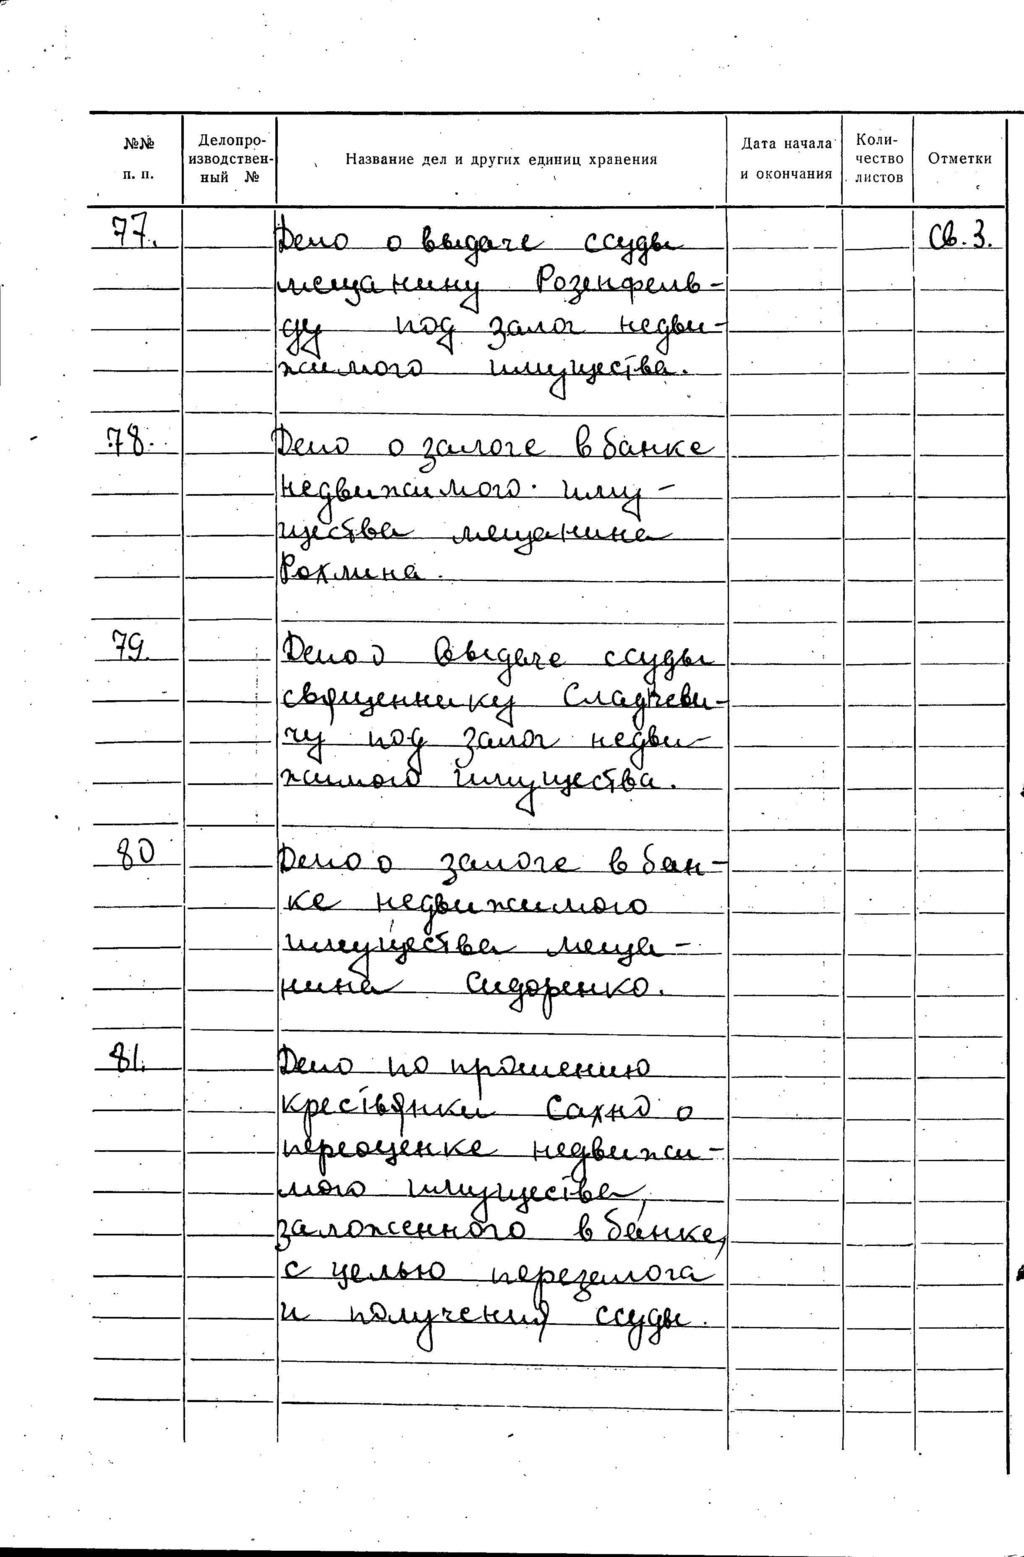 №№ п. п. Делопро-изводствен-ный № Название дел и других единиц хранения Дата начала и окончания Коли-чество листов Отметки
77. Дело о выдаче ссуды св. 3.
мещанину Розенфель-
ду под залог недви-
жимого имущества.
78. Дело о залоге в банке
недвижимого иму-
щества мещанина
Рохлина.
79. Дело о выдаче ссуды
священнику
чу под залог недви-
жимого имущества.
80 Дело о залоге в бан-
ке недвижимого
имущества меща-
нина Сидоренко.
81. Дело по прошению
крестьянки Сахно о
переоценке недвижи-
мого имущества,
заложенного в банке,
с целью перезалога
и получения ссуды.